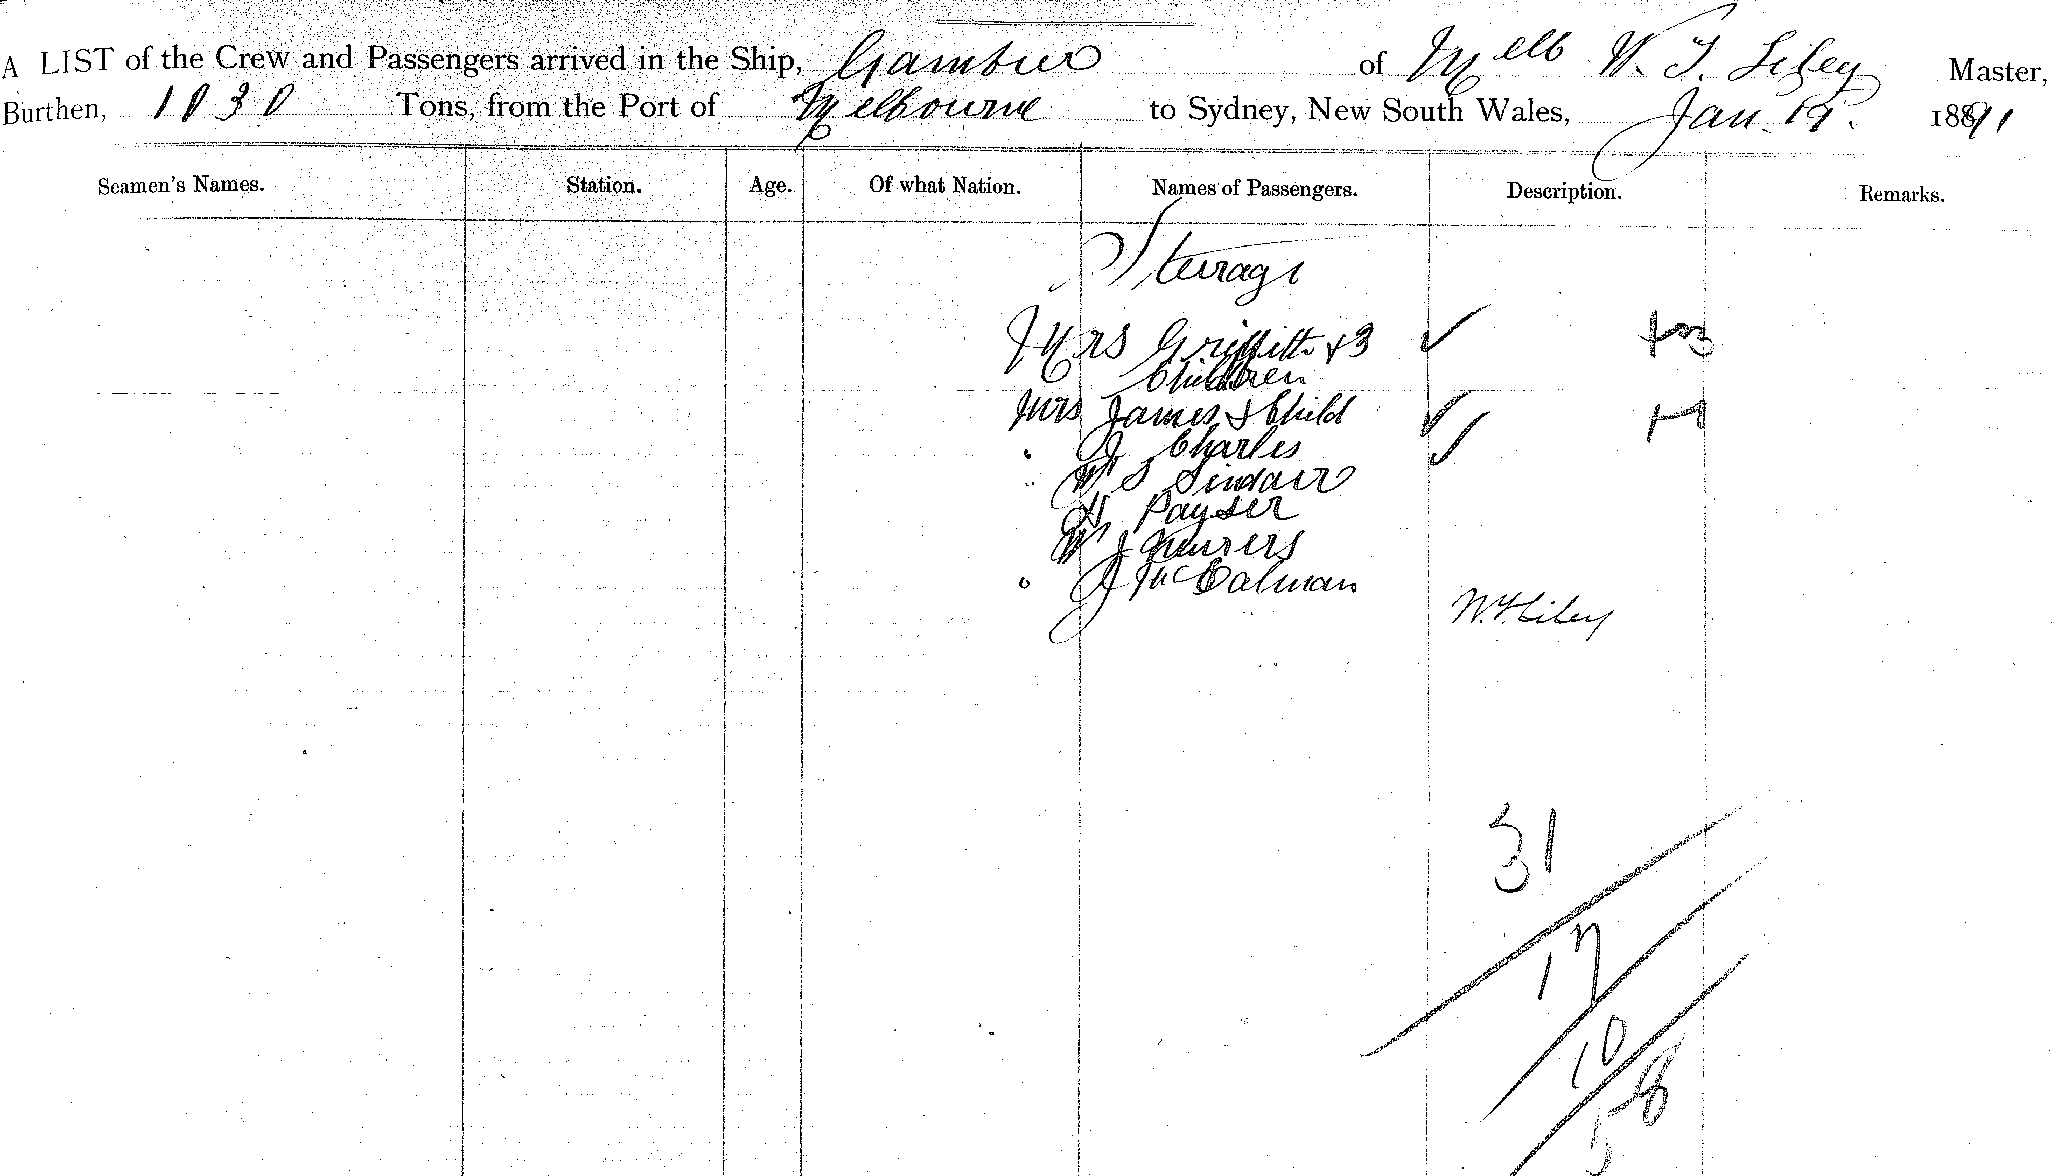 A LIST of the Crew and Passengers arrived in the Ship, Gambier of Melb W. T. Liley Master,
Burthen, 1030 Tons, from the Port of Melbourne to Sydney, New South Wales, Jan. 19. 1891
Seamen's Names. Station. Age. Of what Nation. Names of Passengers. Description. Remarks.
Steerage
Mrs Griffith + 3 +3
Children
Mrs James & Child +1
" J Charles
" W S Sinclair
H Payser
W J
" J McCalman
W.T. Liley
31
17
10
58